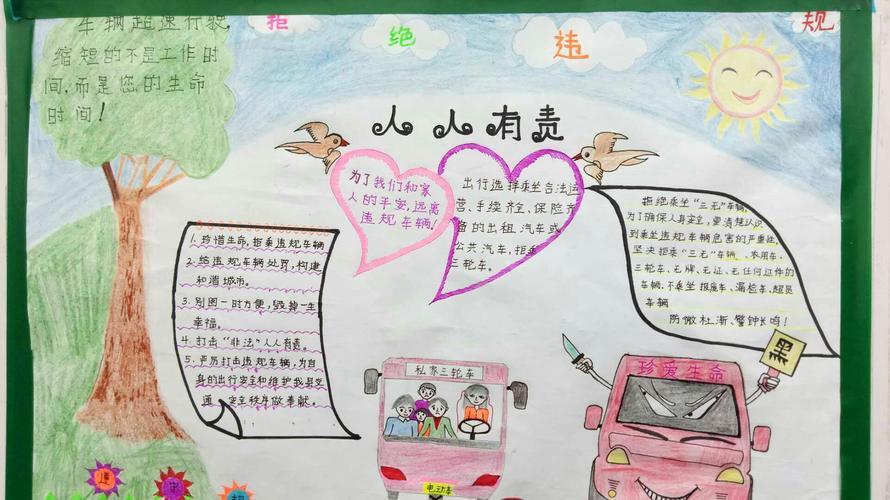 车辆超速行驶,
缩短的不是工作时
间,而是您的生命
时间!
拒
绝
违
规
人人有责
为了我们和家
人的平安,远离
违规车辆!
出行选择乘坐合法运
营、手续齐全、保险齐
备的出租汽车或
公共汽车,拒乘
三轮车。
1. 珍惜生命,拒乘违规车辆
2. 给违规车辆处罚,构建
和谐城市。
3. 别图一时方便,毁掉一生
幸福。
4. 打击“非法”人人有责。
5. 严厉打击违规车辆,为自
身的出行安全和维护我县交
通安全秩序做奉献。
拒绝乘坐“三无”车辆,
为了确保人身安全,要清楚认识
到乘坐违规车辆危害的严重性,
坚决拒乘“三无”车辆、农用车、
三轮车、无牌、无证、无任何证件的
车辆,不乘坐报废车、漏检车、超员
车辆
防微杜渐、警钟长鸣!
私家三轮车
电动车
珍爱生命
违